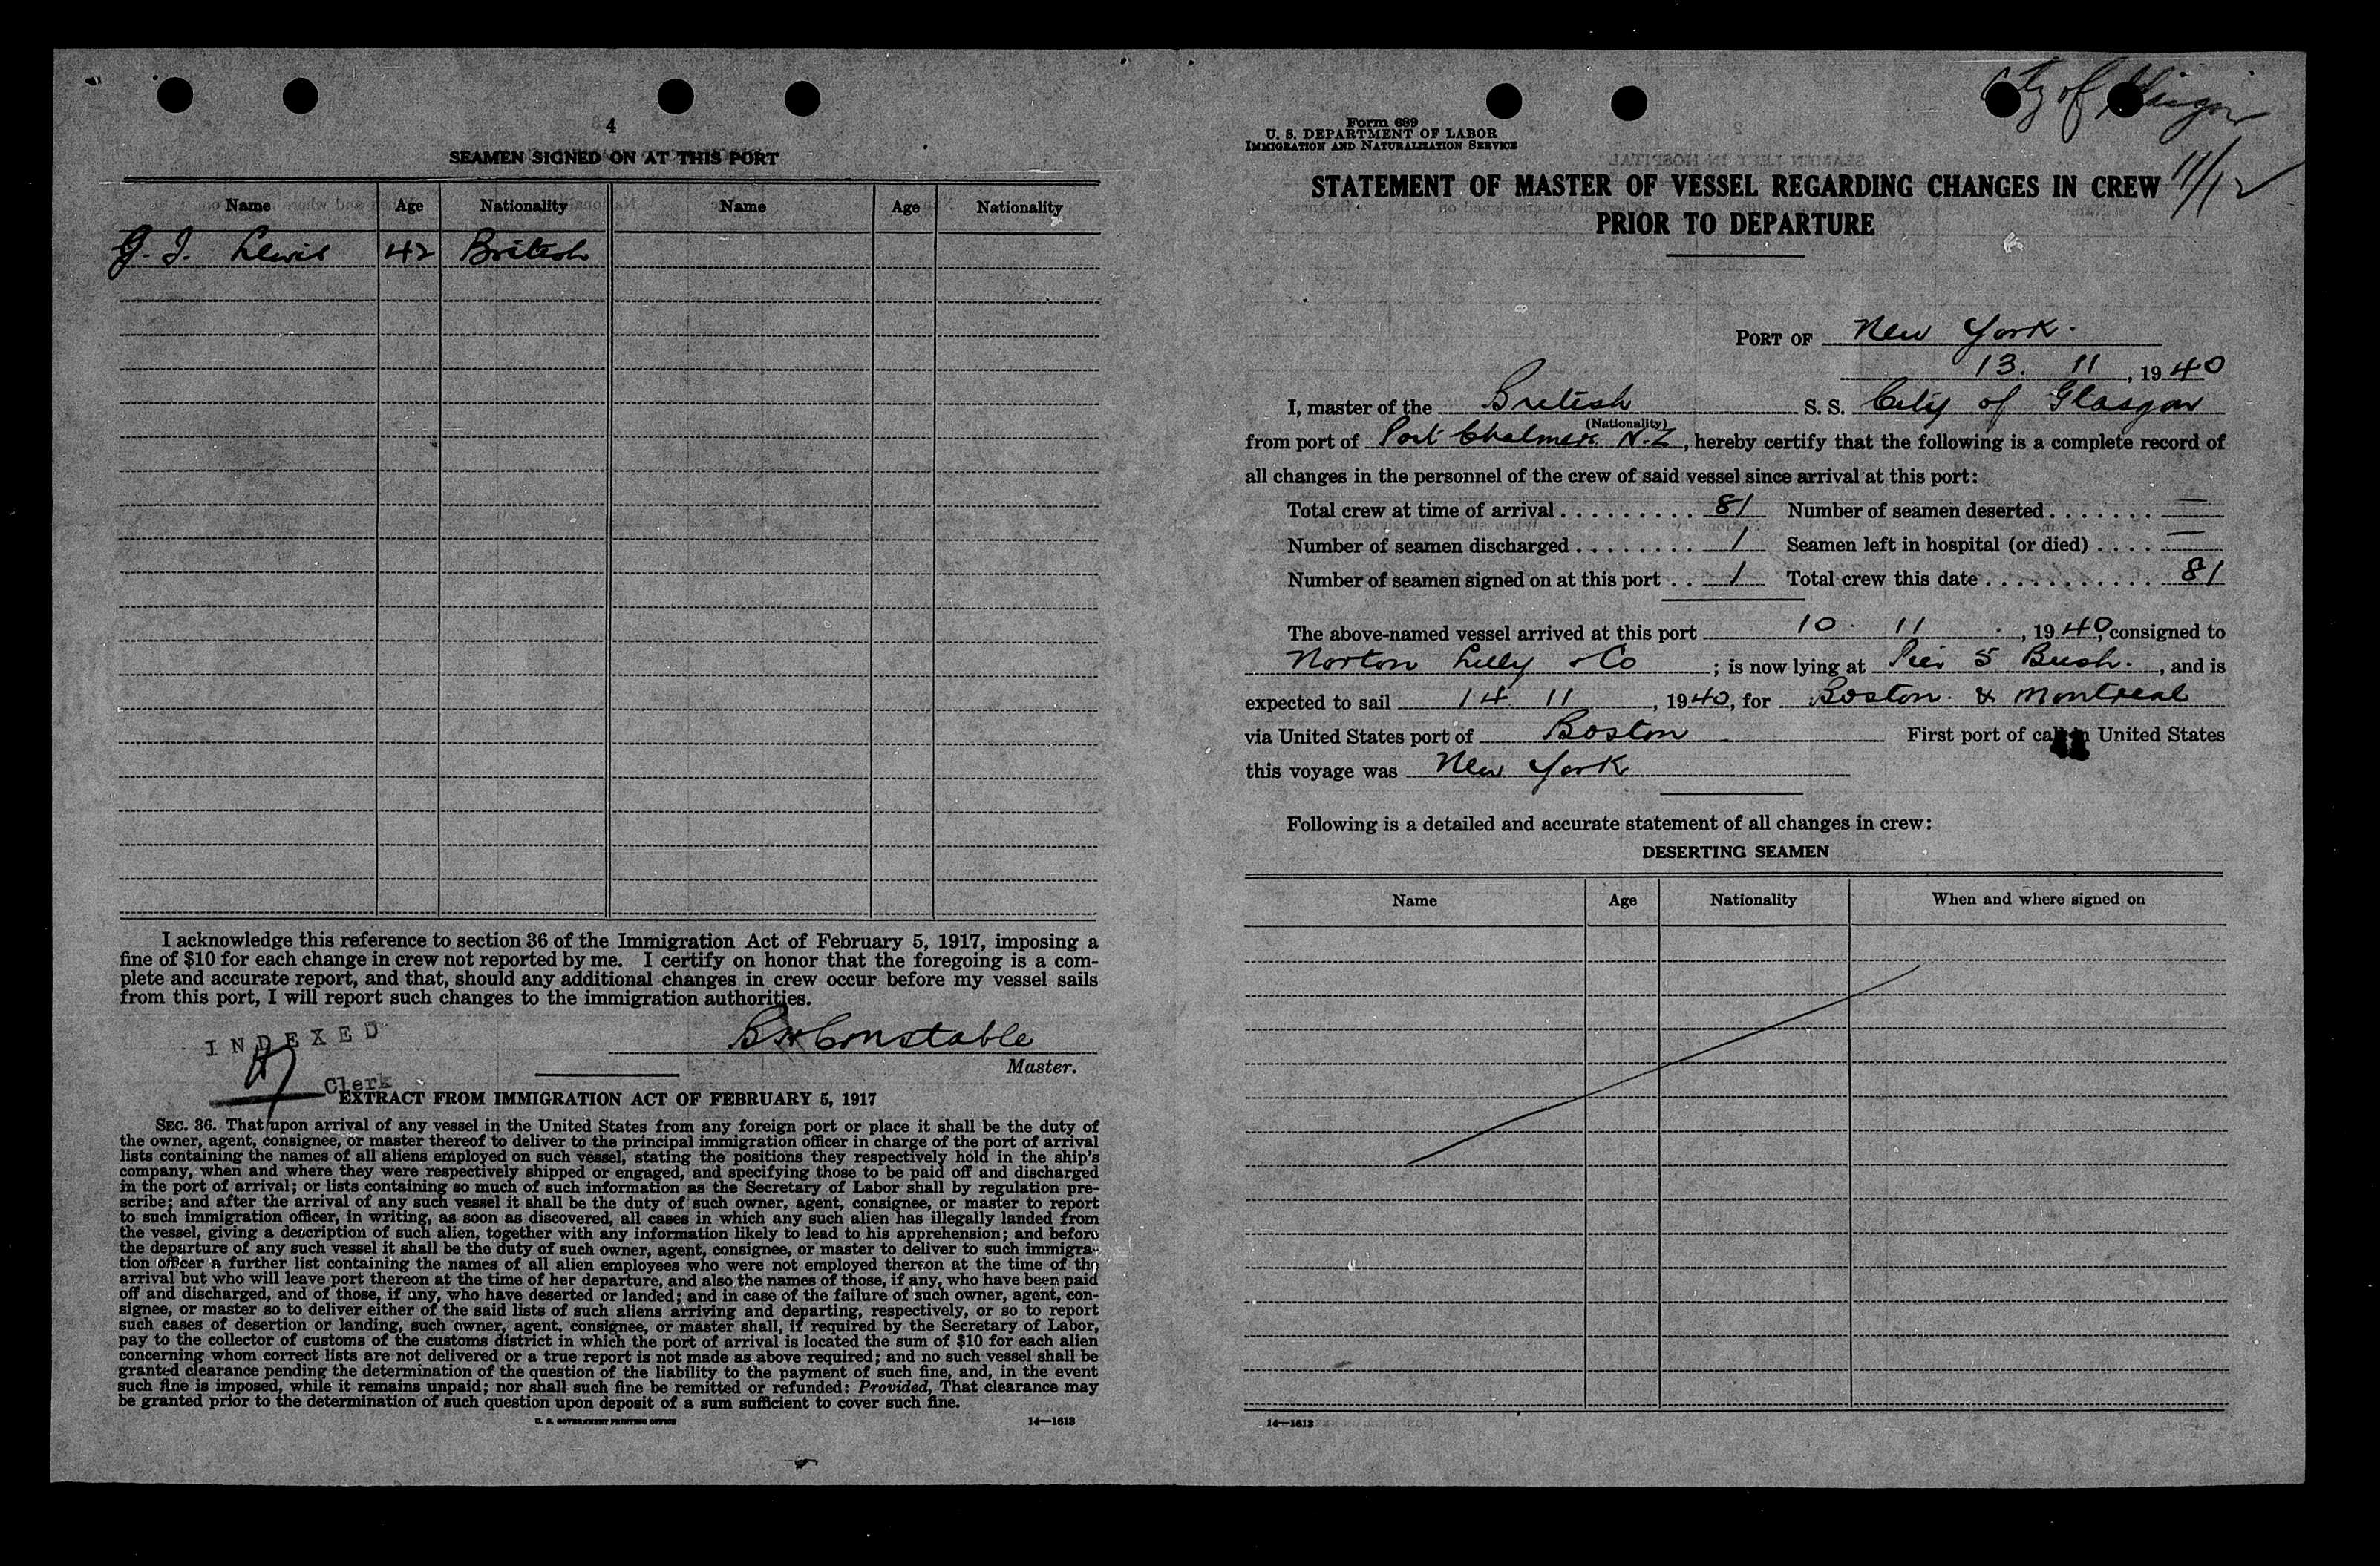 4
SEAMEN SIGNED ON AT THIS PORT
Name Age Nationality Name Age Nationality
G. J. Lewis 42 British
I acknowledge this reference to section 36 of the Immigration Act of February 5, 1917, imposing a
fine of $10 for each change in crew not reported by me. I certify on honor that the foregoing is a com-
plete and accurate report, and that, should any additional changes in crew occur before my vessel sails
from this port, I will report such changes to the immigration authorities.
INDEXED
Constable
Master.
Clerk
EXTRACT FROM IMMIGRATION ACT OF FEBRUARY 5, 1917
SEC. 36. That upon arrival of any vessel in the United States from any foreign port or place it shall be the duty of
the owner, agent, consignee, or master thereof to deliver to the principal immigration officer in charge of the port of arrival
lists containing the names of all aliens employed on such vessel, stating the positions they respectively hold in the ship's
company, when and where they were respectively shipped or engaged, and specifying those to be paid off and discharged
in the port of arrival; or lists containing so much of such information as the Secretary of Labor shall by regulation pre-
scribe; and after the arrival of any such vessel it shall be the duty of such owner, agent, consignee, or master to report
to such immigration officer, in writing, as soon as discovered, all cases in which any such alien has illegally landed from
the vessel, giving a description of such alien, together with any information likely to lead to his apprehension; and before
the departure of any such vessel it shall be the duty of such owner, agent, consignee, or master to deliver to such immigra-
tion officer a further list containing the names of all alien employees who were not employed thereon at the time of the
arrival but who will leave port thereon at the time of her departure, and also the names of those, if any, who have been paid
off and discharged, and of those, if any, who have deserted or landed; and in case of the failure of such owner, agent, con-
signee, or master so to deliver either of the said lists of such aliens arriving and departing, respectively, or so to report
such cases of desertion or landing, such owner, agent, consignee, or master shall, if required by the Secretary of Labor,
pay to the collector of customs of the customs district in which the port of arrival is located the sum of $10 for each alien
concerning whom correct lists are not delivered or a true report is not made as above required; and no such vessel shall be
granted clearance pending the determination of the question of the liability to the payment of such fine, and, in the event
such fine is imposed, while it remains unpaid; nor shall such fine be remitted or refunded: Provided, That clearance may
be granted prior to the determination of such question upon deposit of a sum sufficient to cover such fine.
U. S. GOVERNMENT PRINTING OFFICE 14—1613
City of Glasgow
11/12
Form 689
U. S. DEPARTMENT OF LABOR
IMMIGRATION AND NATURALIZATION SERVICE
STATEMENT OF MASTER OF VESSEL REGARDING CHANGES IN CREW
PRIOR TO DEPARTURE
PORT OF New York.
13. 11, 1940
I, master of the British S. S. City of Glasgow
(Nationality)
from port of Port Chalmers N.Z, hereby certify that the following is a complete record of
all changes in the personnel of the crew of said vessel since arrival at this port:
Total crew at time of arrival 81 Number of seamen deserted —
Number of seamen discharged 1 Seamen left in hospital (or died) —
Number of seamen signed on at this port 1 Total crew this date 81
The above-named vessel arrived at this port 10. 11., 1940, consigned to
Norton Lilly & Co; is now lying at Pier 5 Bush., and is
expected to sail 14 11, 1940, for Boston & Montreal
via United States port of Boston First port of call in United States
this voyage was New York
Following is a detailed and accurate statement of all changes in crew:
DESERTING SEAMEN
Name Age Nationality When and where signed on
14—1613